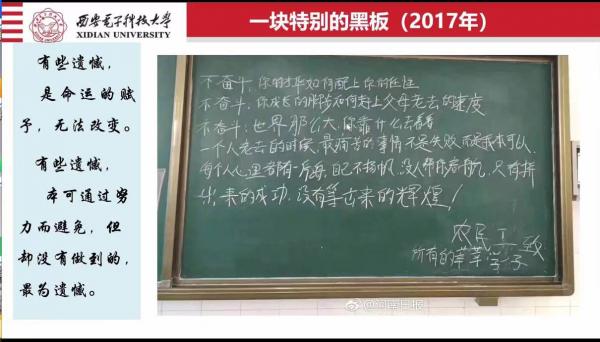 西安电子科技大学
XIDIAN UNIVERSITY
一块特别的黑板（2017年）
有些遗憾，
是命运的赋
予，无法改变。
有些遗憾，
本可通过努
力而避免，但
却没有做到的，
最为遗憾。
不奋斗，你的才华如何配上你的任性
不奋斗，你成长的脚步如何赶上父母老去的速度
不奋斗，世界那么大，你靠什么去看看
一个人老去的时候，最痛苦的事情不是失败，而是我本可以
每个人心里都有一片海，自己不扬帆，没人帮你启航，只有拼
出来的成功，没有等出来的辉煌！
农民工致
所有的莘莘学子
@河南日报